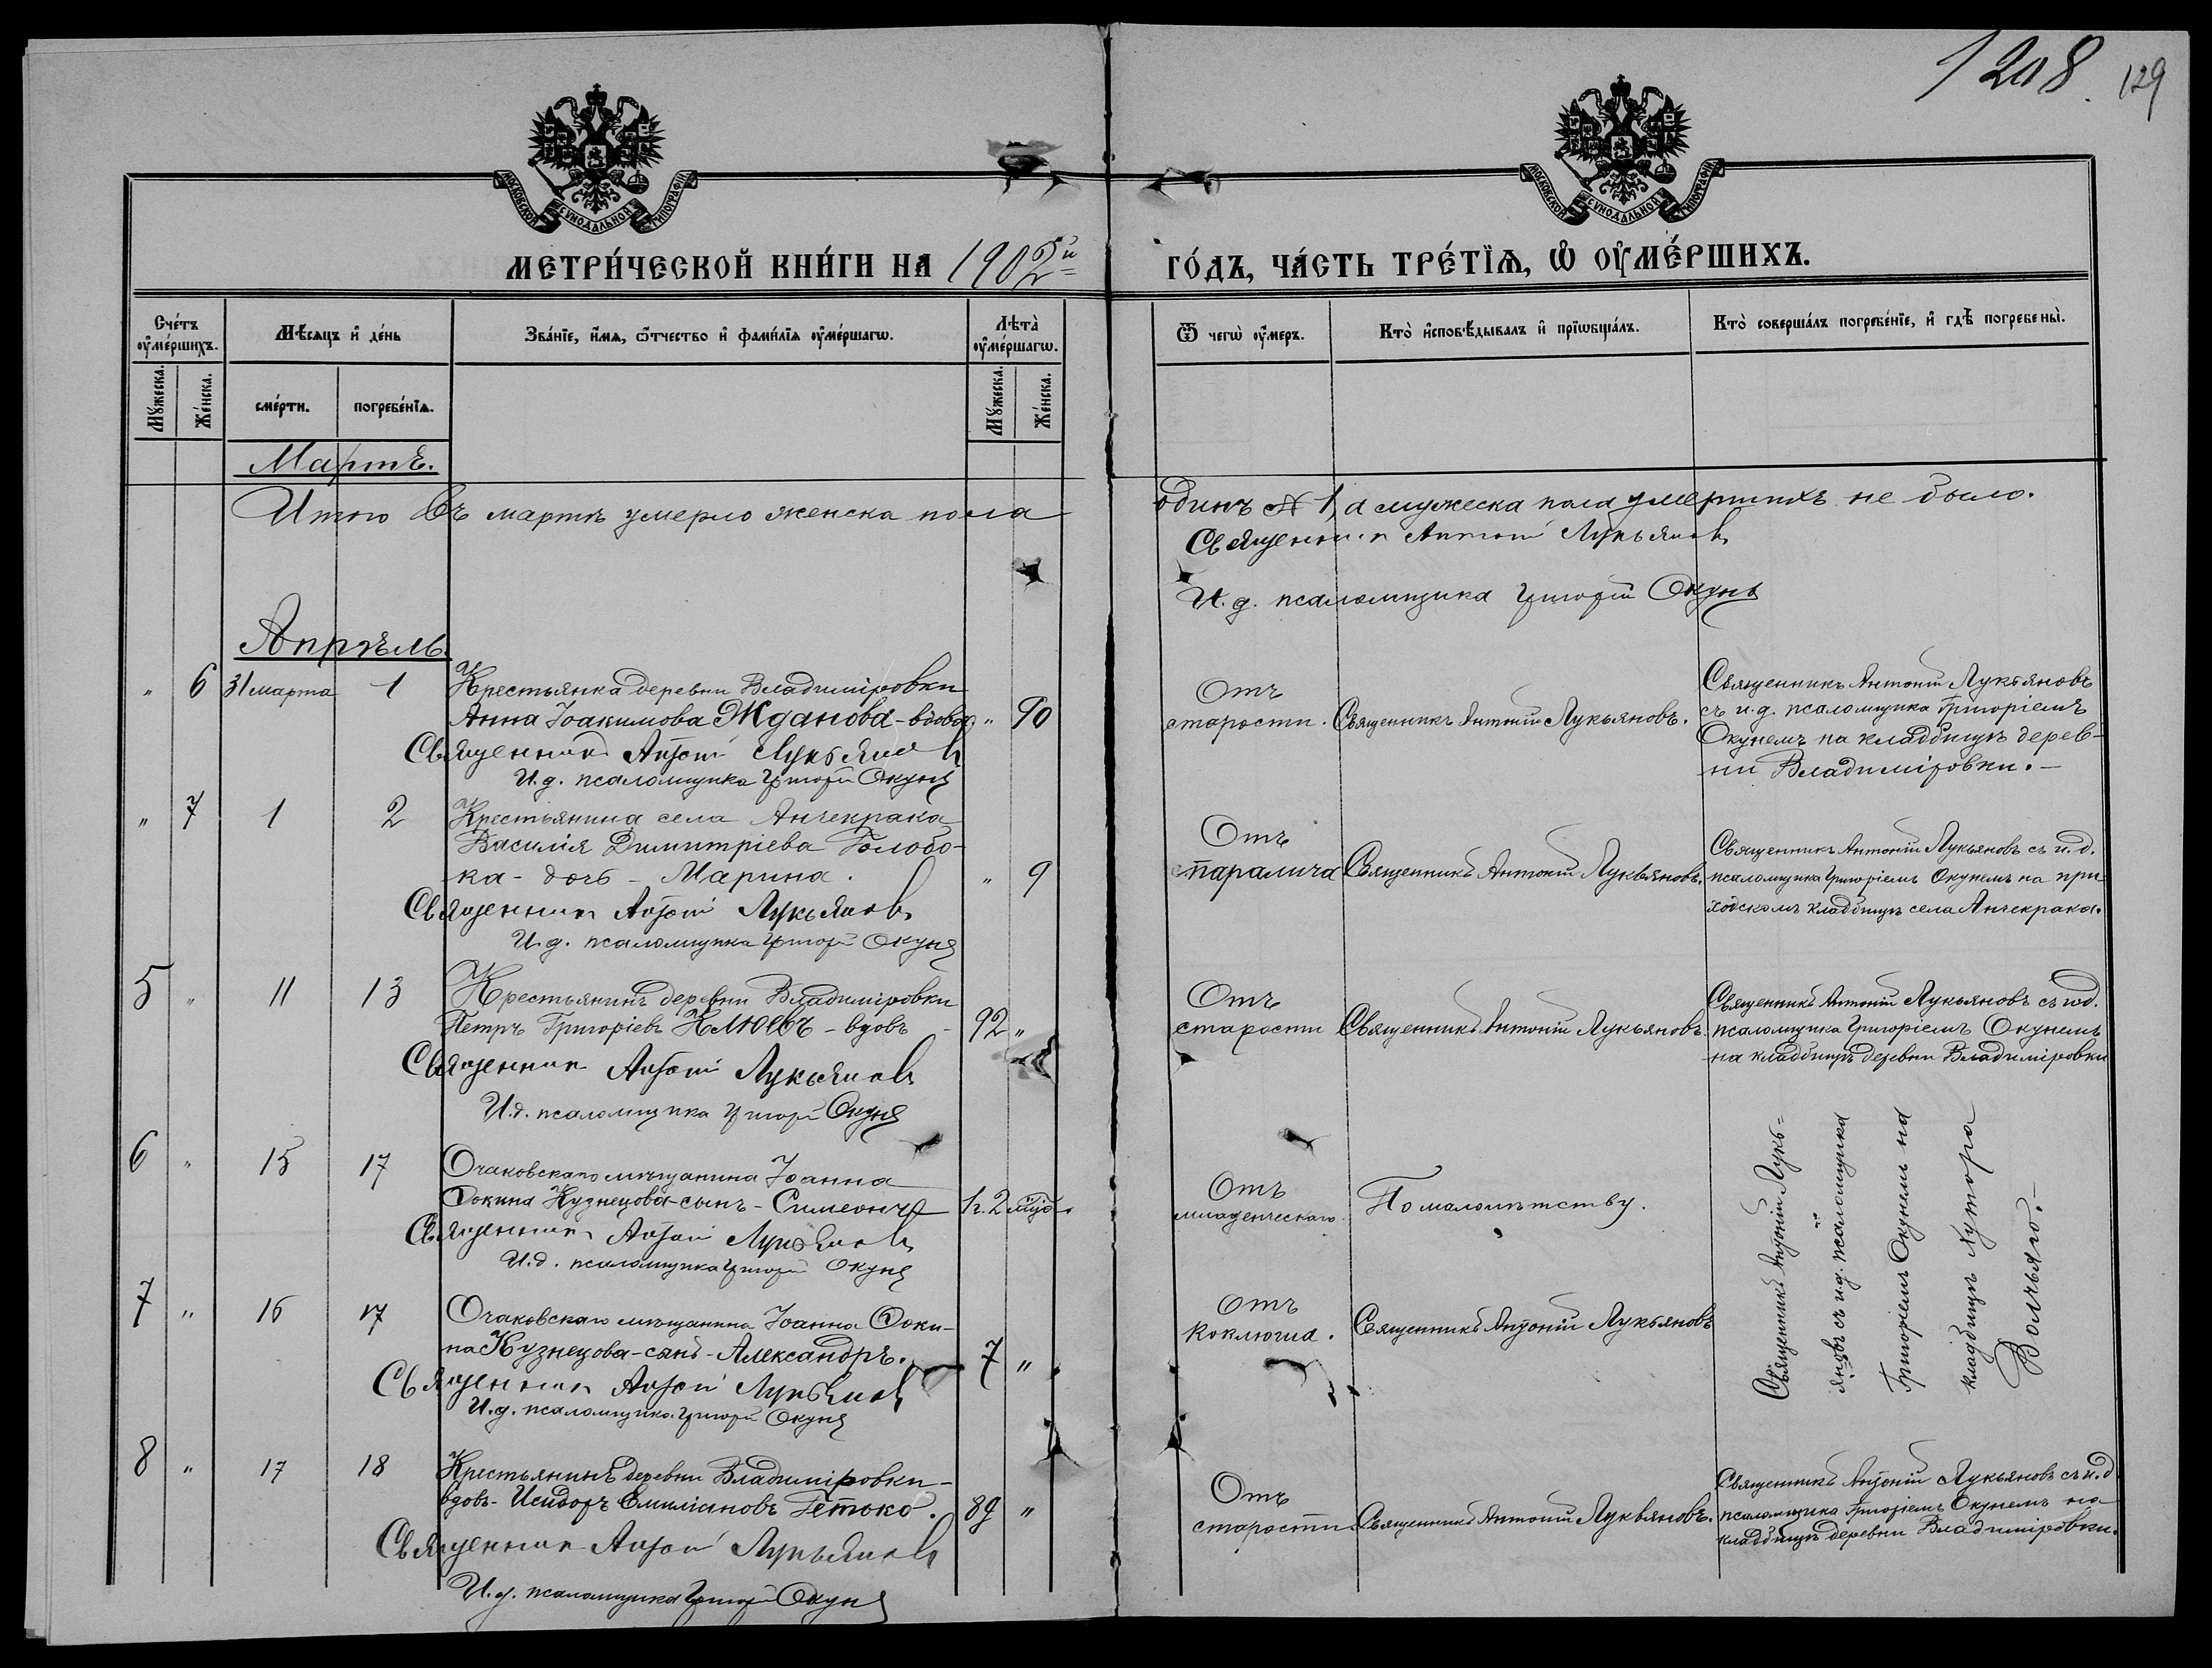 1208. 129
МОСКОВСКОЙ СѴНОДАЛЬНОЙ ТИПОГРАФІИ
МОСКОВСКОЙ СѴНОДАЛЬНОЙ ТИПОГРАФІИ
МЕТРИ́ЧЕСКОЙ КНИ́ГИ НА 1902й ГО́ДЪ, ЧА́СТЬ ТРЕ́ТЇѦ, Ѡ҆ ОУ҆МЕ́РШИХЪ.
Сче́тъ оу҆ме́ршихъ.
Мѣ́сяцъ и҆ де́нь
Зва́нїе, и҆́мѧ, ѻ҆́тчество и҆ фами́лїѧ оу҆ме́ршагѡ.
Лѣта̀ оу҆ме́ршагѡ.
Ѿ чегѡ̀ оу҆́меръ.
Кто̀ и҆сповѣ́дывалъ и҆ прїѡбща́лъ.
Кто̀ соверша́лъ погребе́нїе, и҆ гдѣ̀ погребены̀.
Мꙋ́жеска.
Же́нска.
сме́рти.
погребе́нїѧ.
Мꙋ́жеска.
Же́нска.
Мартъ.
Итого въ мартѣ умерло женска пола одинъ № 1, а мужеска пола умершихъ не было.
Священник Антоній Лукьянов
И. д. псаломщика Григорій Окунь
Апрѣль.
" 6 31 марта 1
Крестьянка деревни Владиміровки
Анна Іоакимова Жданова - вдова " 90
Священник Антоній Лукьянов
И. д. псаломщика Григорій Окунь
Отъ
старости.
Священникъ Антоній Лукьяновъ.
Священникъ Антоній Лукьяновъ
съ и. д. псаломщика Григоріемъ
Окунемъ на кладбищѣ дерев-
ни Владиміровки. —
" 7 1 2
Крестьянина села Анчекрака
Василія Димитріева Голобо-
ка - дочь - Марина. " 9
Священник Антоній Лукьянов
И. д. псаломщика Григорій Окунь
Отъ
паралича
Священникъ Антоній Лукьяновъ.
Священникъ Антоній Лукьяновъ съ и. д.
псаломщика Григоріемъ Окунемъ на при-
ходскомъ кладбищѣ села Анчекрака.
5 " 11 13
Крестьянинъ деревни Владиміровки
Петръ Григоріевъ Клюевъ - вдовъ - 92 "
Священник Антоній Лукьянов
И. д. псаломщика Григорій Окунь
Отъ
старости
Священникъ Антоній Лукьяновъ.
Священникъ Антоній Лукьяновъ съ и д.
псаломщика Григоріемъ Окунемъ
на кладбищѣ деревни Владиміровки
6 " 15 17
Очаковскаго мѣщанина Іоанна
Фокина Кузнецова - сынъ - Симеонъ 1 г. 2 мѣс.
Священник Антоній Лукьянов
И. д. псаломщика Григорій Окунь
Отъ
младенческаго
По малолѣтству.
Священникъ Антоній Лукь-
яновъ съ и. д. псаломщика
Григоріемъ Окунемъ на
кладбищѣ хутора
Волчьяго. —
7 " 16 17
Очаковскаго мѣщанина Іоанна Фоки-
на Кузнецова - сынъ - Александръ. 7 "
Священник Антоній Лукьянов
И. д. псаломщика Григорій Окунь
Отъ
коклюша.
Священникъ Антоній Лукьяновъ
8 " 17 18
Крестьянинъ деревни Владиміровки -
вдовъ - Исидоръ Емиліановъ Гетоко. 89 "
Священник Антоній Лукьянов
И. д. псаломщика Григорій Окунь
Отъ
старости.
Священникъ Антоній Лукьяновъ.
Священникъ Антоній Лукьяновъ съ и. д.
псаломщика Григоріемъ Окунемъ на
кладбищѣ деревни Владиміровки.